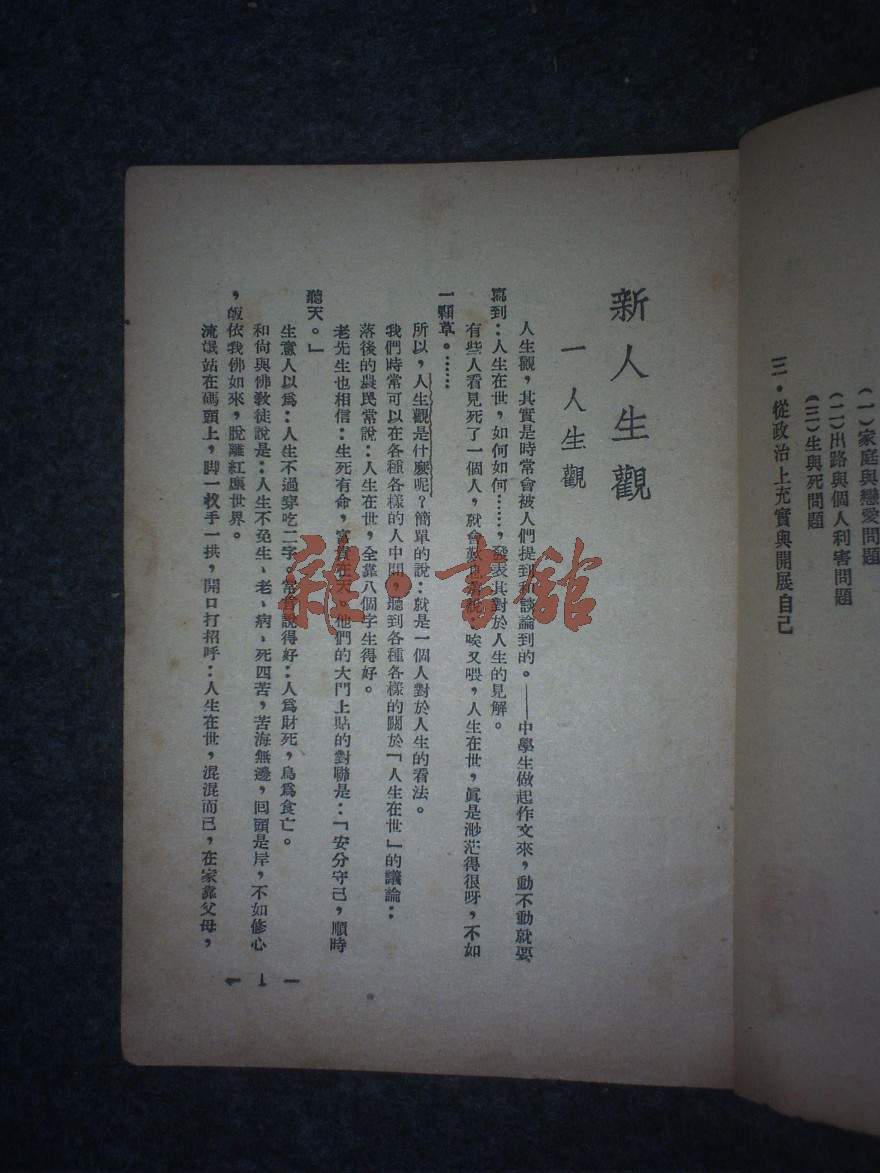 (一)家庭與戀愛問題
(二)出路與個人利害問題
(三)生與死問題
三・從政治上充實與開展自己
新人生觀
一 人生觀
人生觀，其實是時常會被人們提到和談論到的。——中學生做起作文來，動不動就要
寫到：人生在世，如何如何……，發表其對於人生的見解。
有些人看見死了一個人，就會歎息着說：唉又喂，人生在世，眞是渺茫得很呀，不如
一顆草。……
所以，人生觀是什麼呢？簡單的說：就是一個人對於人生的看法。
我們時常可以在各種各樣的人中間，聽到各種各樣的關於「人生在世」的議論：
落後的農民常說：人生在世，全靠八個字生得好。
老先生也相信：生死有命，富貴在天。他們的大門上貼的對聯是：「安分守己，順時
聽天。」
生意人以爲：人生不過穿吃二字。常言說得好：人爲財死，鳥爲食亡。
和尙與佛教徒說是：人生不免生、老、病、死四苦，苦海無邊，回頭是岸，不如修心
，皈依我佛如來，脫離紅塵世界。
流氓站在碼頭上，脚一敉手一拱，開口打招呼：人生在世，混混而已，在家靠父母，
— 1 —
雜・書館